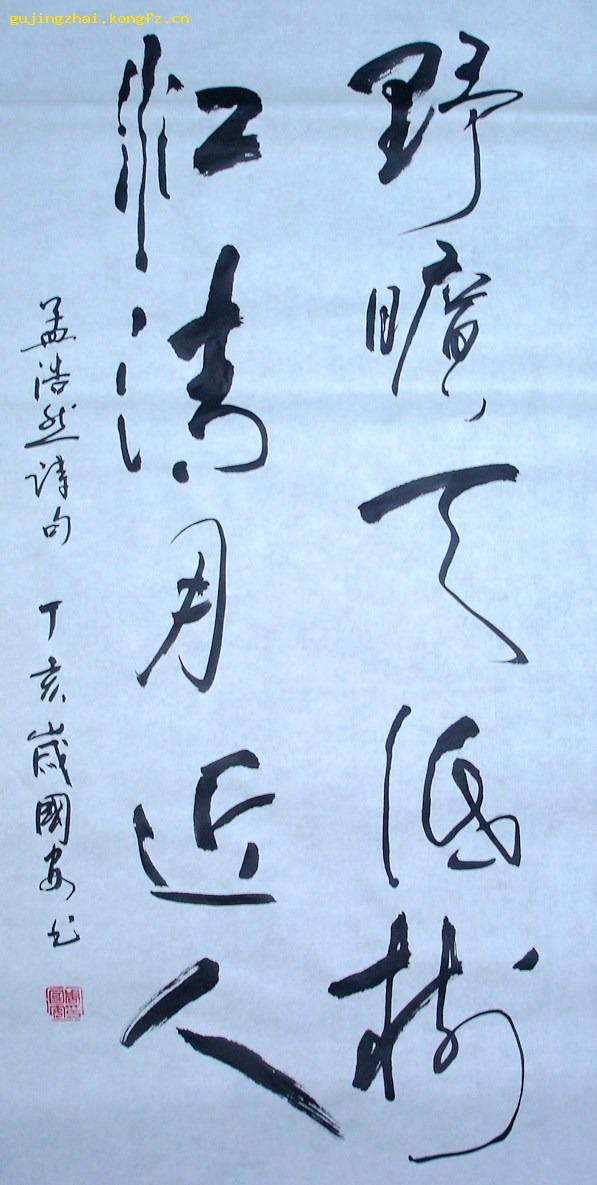 gujingzhai.kongfz.cn
野曠天低樹
江清月近人
孟浩然詩句 丁亥歲國安书